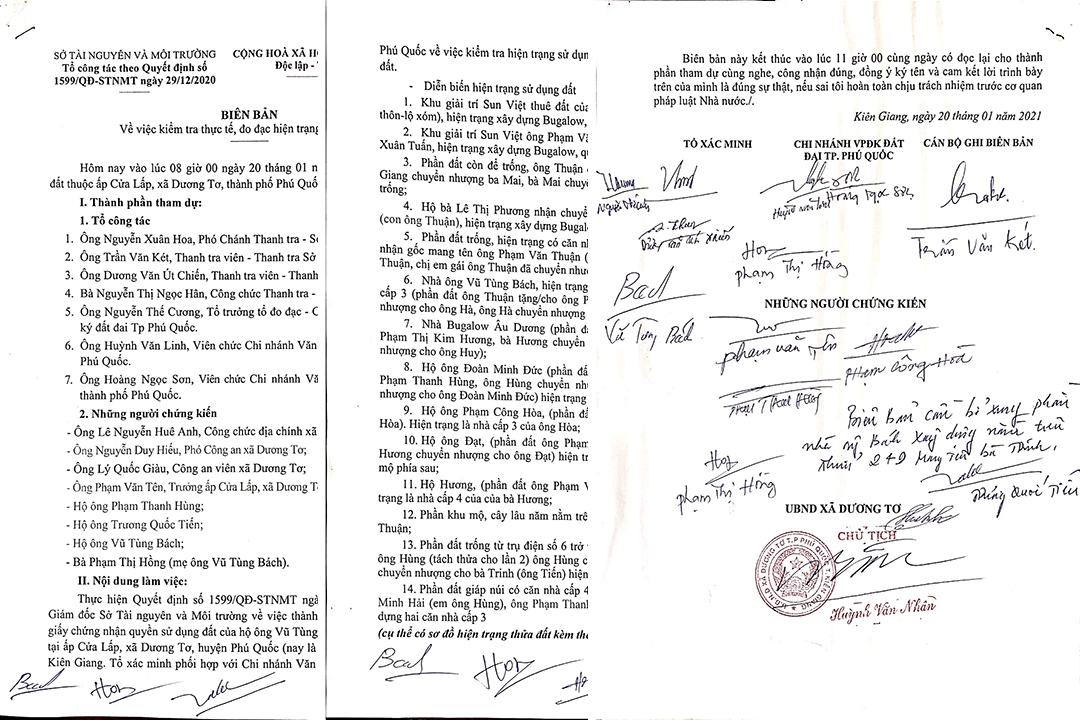 SỞ TÀI NGUYÊN VÀ MÔI TRƯỜNG
Tổ công tác theo Quyết định số
1599/QĐ-STNMT ngày 29/12/2020
CỘNG HOÀ XÃ H
Độc lập -
BIÊN BẢN
Về việc kiểm tra thực tế, đo đạc hiện trạng
Hôm nay vào lúc 08 giờ 00 ngày 20 tháng 01 n
đất thuộc ấp Cửa Lấp, xã Dương Tơ, thành phố Phú Quố
I. Thành phần tham dự:
1. Tổ công tác
1. Ông Nguyễn Xuân Hoa, Phó Chánh Thanh tra - Sở
2. Ông Trần Văn Két, Thanh tra viên - Thanh tra Sở
3. Ông Dương Văn Út Chiến, Thanh tra viên - Thanh
4. Bà Nguyễn Thị Ngọc Hân, Công chức Thanh tra -
5. Ông Nguyễn Thế Cương, Tổ trưởng tổ đo đạc - C
ký đất đai Tp Phú Quốc.
6. Ông Huỳnh Văn Linh, Viên chức Chi nhánh Văn
Phú Quốc.
7. Ông Hoàng Ngọc Sơn, Viên chức Chi nhánh Vă
thành phố Phú Quốc.
2. Những người chứng kiến
- Ông Lê Nguyễn Huê Anh, Công chức địa chính xã
- Ông Nguyễn Duy Hiếu, Phó Công an xã Dương Tơ;
- Ông Lý Quốc Giàu, Công an viên xã Dương Tơ;
- Ông Phạm Văn Tên, Trưởng ấp Cửa Lấp, xã Dương T
- Hộ ông Phạm Thanh Hùng;
- Hộ ông Trương Quốc Tiến;
- Hộ ông Vũ Tùng Bách;
- Bà Phạm Thị Hồng (mẹ ông Vũ Tùng Bách).
II. Nội dung làm việc:
Thực hiện Quyết định số 1599/QĐ-STNMT ngà
Giám đốc Sở Tài nguyên và Môi trường về việc thành
giấy chứng nhận quyền sử dụng đất của hộ ông Vũ Tùng
tại ấp Cửa Lấp, xã Dương Tơ, huyện Phú Quốc (nay là
Kiên Giang. Tổ xác minh phối hợp với Chi nhánh Văn
Phú Quốc về việc kiểm tra hiện trạng sử dụ
đất.
- Diễn biến hiện trạng sử dụng đất
1. Khu giải trí Sun Việt thuê đất củ
thôn-lộ xóm), hiện trạng xây dựng Bugalow,
2. Khu giải trí Sun Việt ông Phạm Vă
Xuân Tuấn, hiện trạng xây dựng Bugalow, q
3. Phần đất còn để trống, ông Thuận
Giang chuyển nhượng ba Mai, bà Mai chuy
trống;
4. Hộ bà Lê Thị Phương nhận chuyể
(con ông Thuận), hiện trạng xây dựng Bugal
5. Phần đất trống, hiện trạng có căn nh
nhận gốc mang tên ông Phạm Văn Thuận (
Thuận, chị em gái ông Thuận đã chuyển như
6. Nhà ông Vũ Tùng Bách, hiện trạng
cấp 3 (phần đất ông Thuận tặng/cho ông P
nhượng cho ông Hà, ông Hà chuyển nhượng
7. Nhà Bugalow Âu Dương (phần đ
Phạm Thị Kim Hương, bà Hương chuyển
nhượng cho ông Huy);
8. Hộ ông Đoàn Minh Đức (phần đấ
Phạm Thanh Hùng, ông Hùng chuyển nh
nhượng cho ông Đoàn Minh Đức) hiện trạng
9. Hộ ông Phạm Công Hòa, (phần đ
Hòa). Hiện trạng là nhà cấp 3 của ông Hòa;
10. Hộ ông Đạt, (phần đất ông Phạm
Hương chuyển nhượng cho ông Đạt) hiện tr
mộ phía sau;
11. Hộ Hương, (phần đất ông Phạm V
trạng là nhà cấp 4 của của bà Hương;
12. Phần khu mộ, cây lâu năm nằm trê
Thuận;
13. Phần đất trống từ trụ điện số 6 trở
ông Hùng (tách thửa cho lần 2) ông Hùng c
chuyển nhượng cho bà Trinh (ông Tiến) hiện
14. Phần đất giáp núi có căn nhà cấp 4
Minh Hải (em ông Hùng), ông Phạm Thanh
dựng hai căn nhà cấp 3
(cụ thể có sơ đồ hiện trạng thửa đất kèm the
Biên bản này kết thúc vào lúc 11 giờ 00 cùng ngày có đọc lại cho thành
phần tham dự cùng nghe, công nhận đúng, đồng ý ký tên và cam kết lời trình bày
trên của mình là đúng sự thật, nếu sai tôi hoàn toàn chịu trách nhiệm trước cơ quan
pháp luật Nhà nước./.
Kiên Giang, ngày 20 tháng 01 năm 2021
TỔ XÁC MINH
CHI NHÁNH VPĐK ĐẤT
ĐAI TP. PHÚ QUỐC
CÁN BỘ GHI BIÊN BẢN
Hoàng Ngọc Sơn
Trần Văn Két.
Phạm Thị Hồng
Vũ Tùng Bách
NHỮNG NGƯỜI CHỨNG KIẾN
Phạm Văn Tên
Phạm Công Hoà
Phạm Thanh Hùng
Biên bản cần bổ xung phần
Phạm Thị Hồng
UBND XÃ DƯƠNG TƠ
CHỦ TỊCH
Huỳnh Văn Nhân